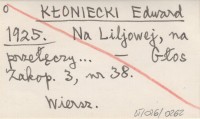 KŁONIECKI Edward
1925. Na Liljowej, na
przełęczy... — Głos
Zakop. 3, nr 38.
Wiersz.